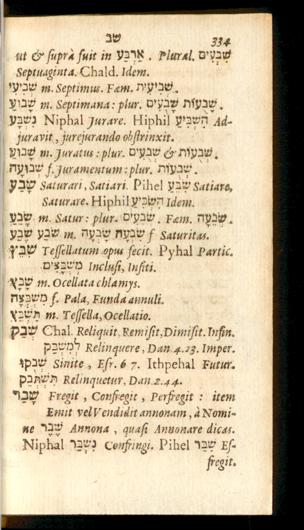 שב
334
ut & suprà fuit in אַרְבַּע . Plural. שִׁבְעִים
Septuaginta. Chald. Idem.
שְׁבִיעִי m. Septimus. Fæm. שְׁבִיעִית.
שָׁבוּעַ m. Septimana: plur. שָׁבֻעוֹת שָׁבֻעִים.
נִשְׁבַּע Niphal Jurare. Hiphil הִשְׁבִּיעַ Ad-
juravit, jurejurando obstrinxit.
m. Juratus: plur. & שְׁבֻעִים.
שְׁבוּעָה f. Juramentum: plur. שְׁבֻעוֹת.
שָׂבַע Saturari, Satiari. Pihel שִׂבַּע Satiare,
Saturare. Hiphil הִשְׂבִּיעַ Idem.
שָׂבֵעַ m. Satur: plur. שְׂבֵעִים. Fæm. שְׂבֵעָה.
שָׂבָע שֹׂבַע m. שָׂבְעָה f Saturitas.
שָׁבַץ Tessellatum opus fecit. Pyhal Partic.
מְשֻׁבָּצִים Inclusi, Insiti.
שָׁבָץ m. Ocellata chlamys.
מִשְׁבֶּצֶת f. Pala, Funda annuli.
תַּשְׁבֵּץ m. Tessella, Ocellatio.
שְׁבַק Chal. Reliquit, Remisit, Dimisit. Infin.
לְמִשְׁבַּק Relinquere, Dan 4.23. Imper.
שְׁבֻקוּ Sinite, Esr. 6 7. Ithpehal Futur.
תִּשְׁתְּבִק Relinquetur, Dan. 2.44.
שָׁבַר Fregit, Confregit, Perfregit: item
Emit vel Vendidit annonam, à Nomi-
ne שֶׁבֶר Annona, quasi Annonare dicas.
Niphal נִשְׁבַּר Confringi. Pihel שִׁבַּר Ef-
fregit.